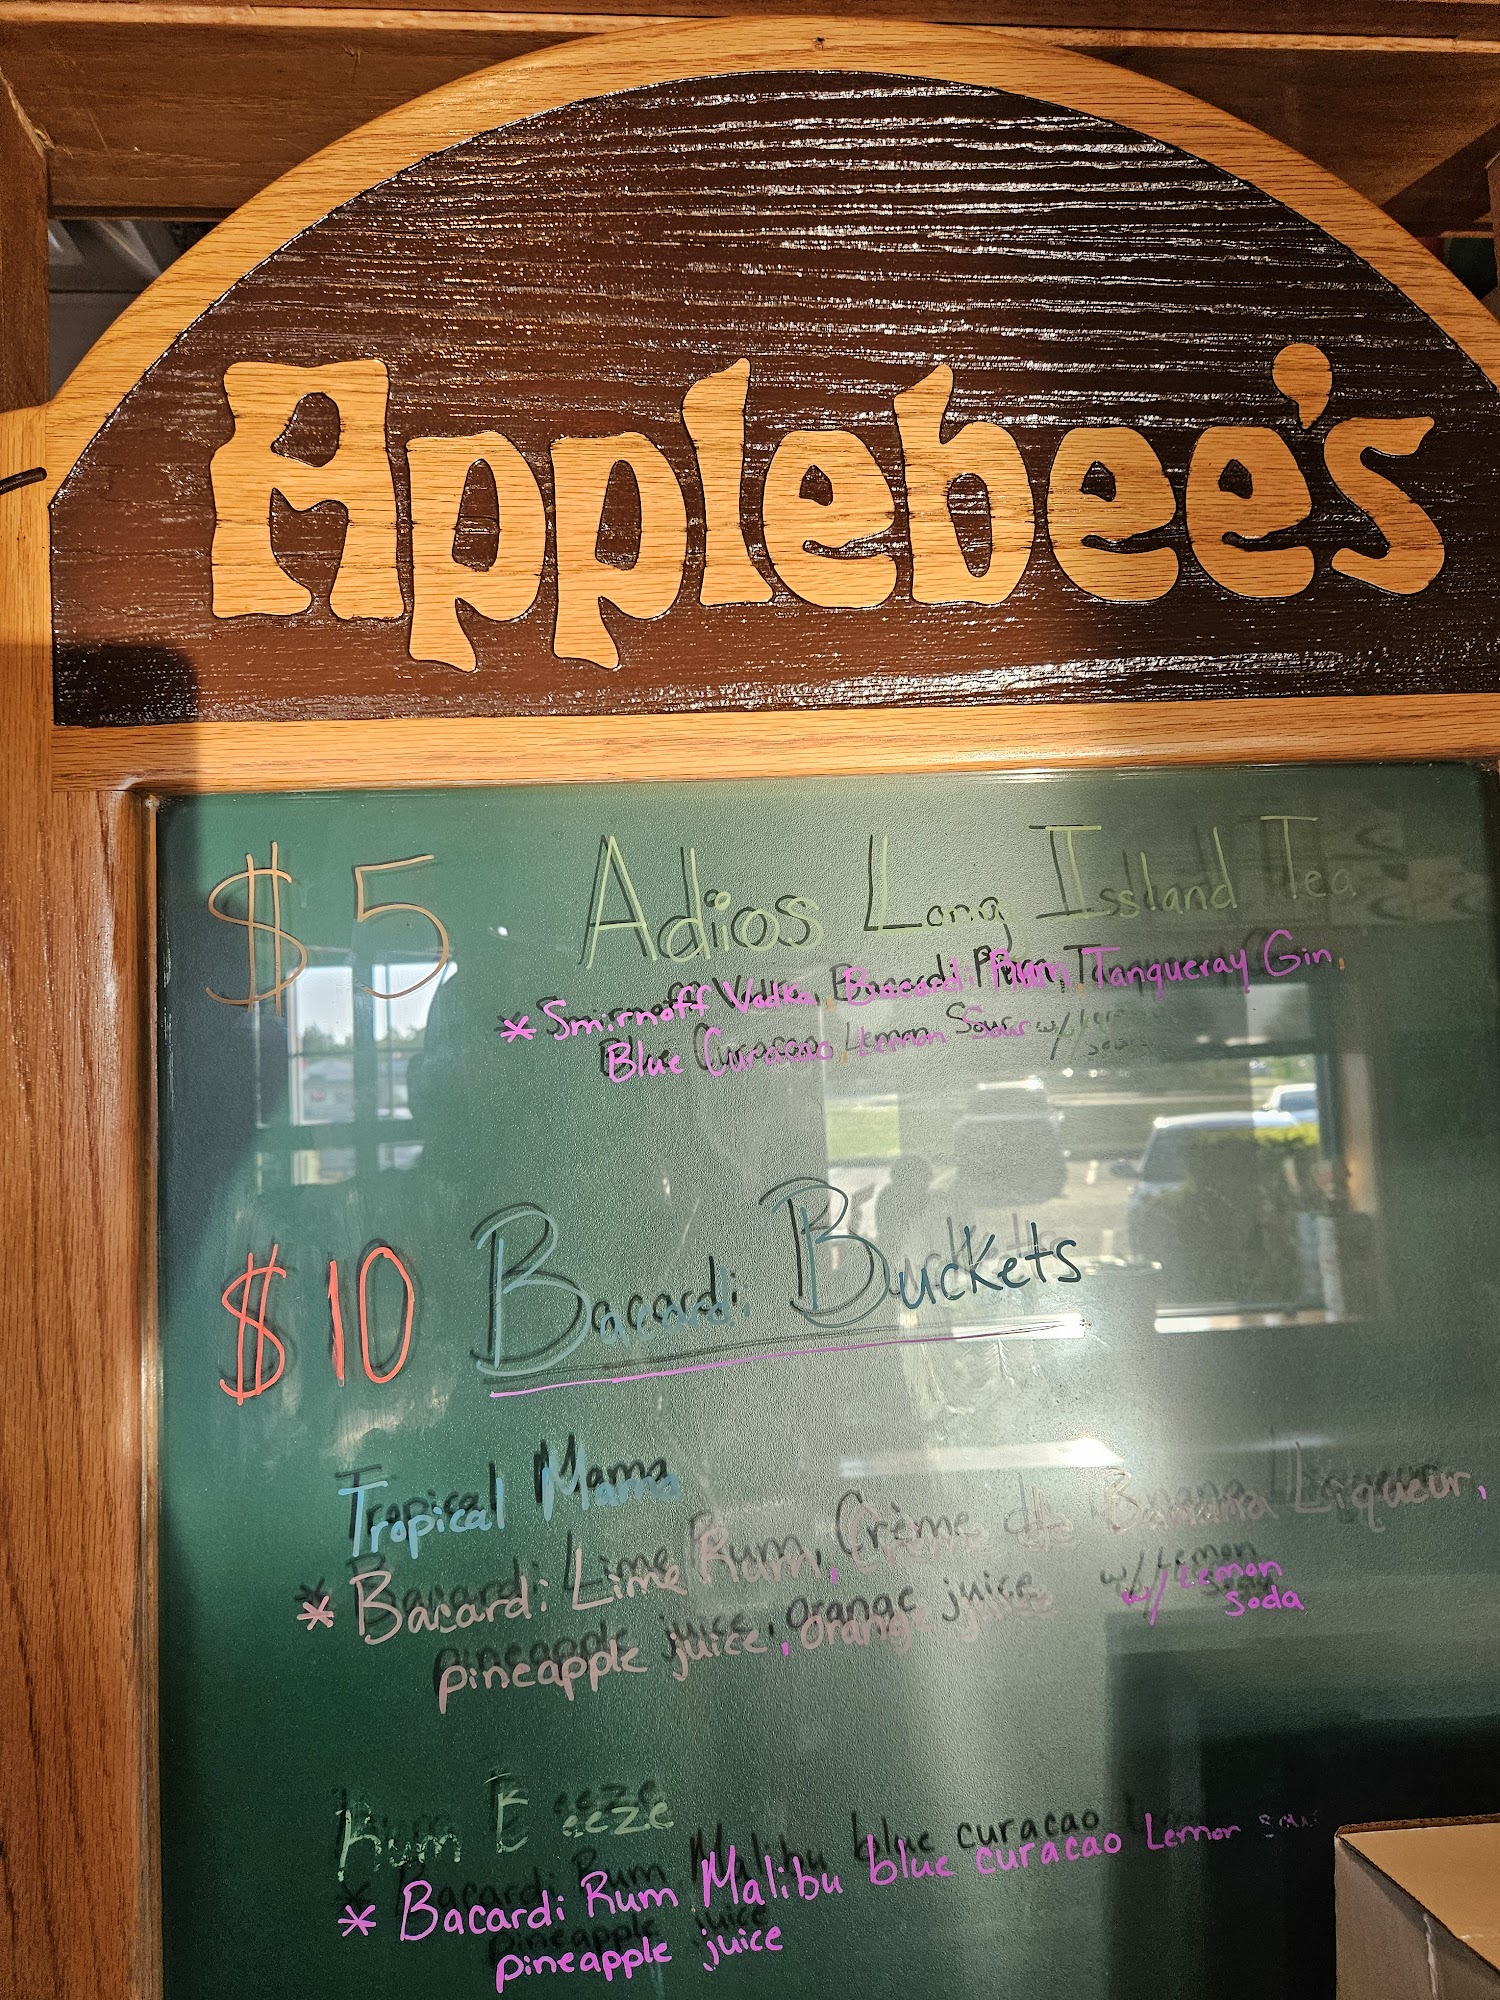 Applebee's
$5 Adios Long Issland Tea
* Smirnoff Vodka, Bacardi Rum, Tanqueray Gin,
Blue Curacao, Lemon Sour w/
$10 Bacardi Buckets
Tropical Mama
* Bacardi Lime Rum, Crème de Banana Liqueur,
pineapple juice, orange juice w/ Lemon
Soda
Rum B eeze
* Bacardi Rum Malibu blue curacao Lemon sour
pineapple juice